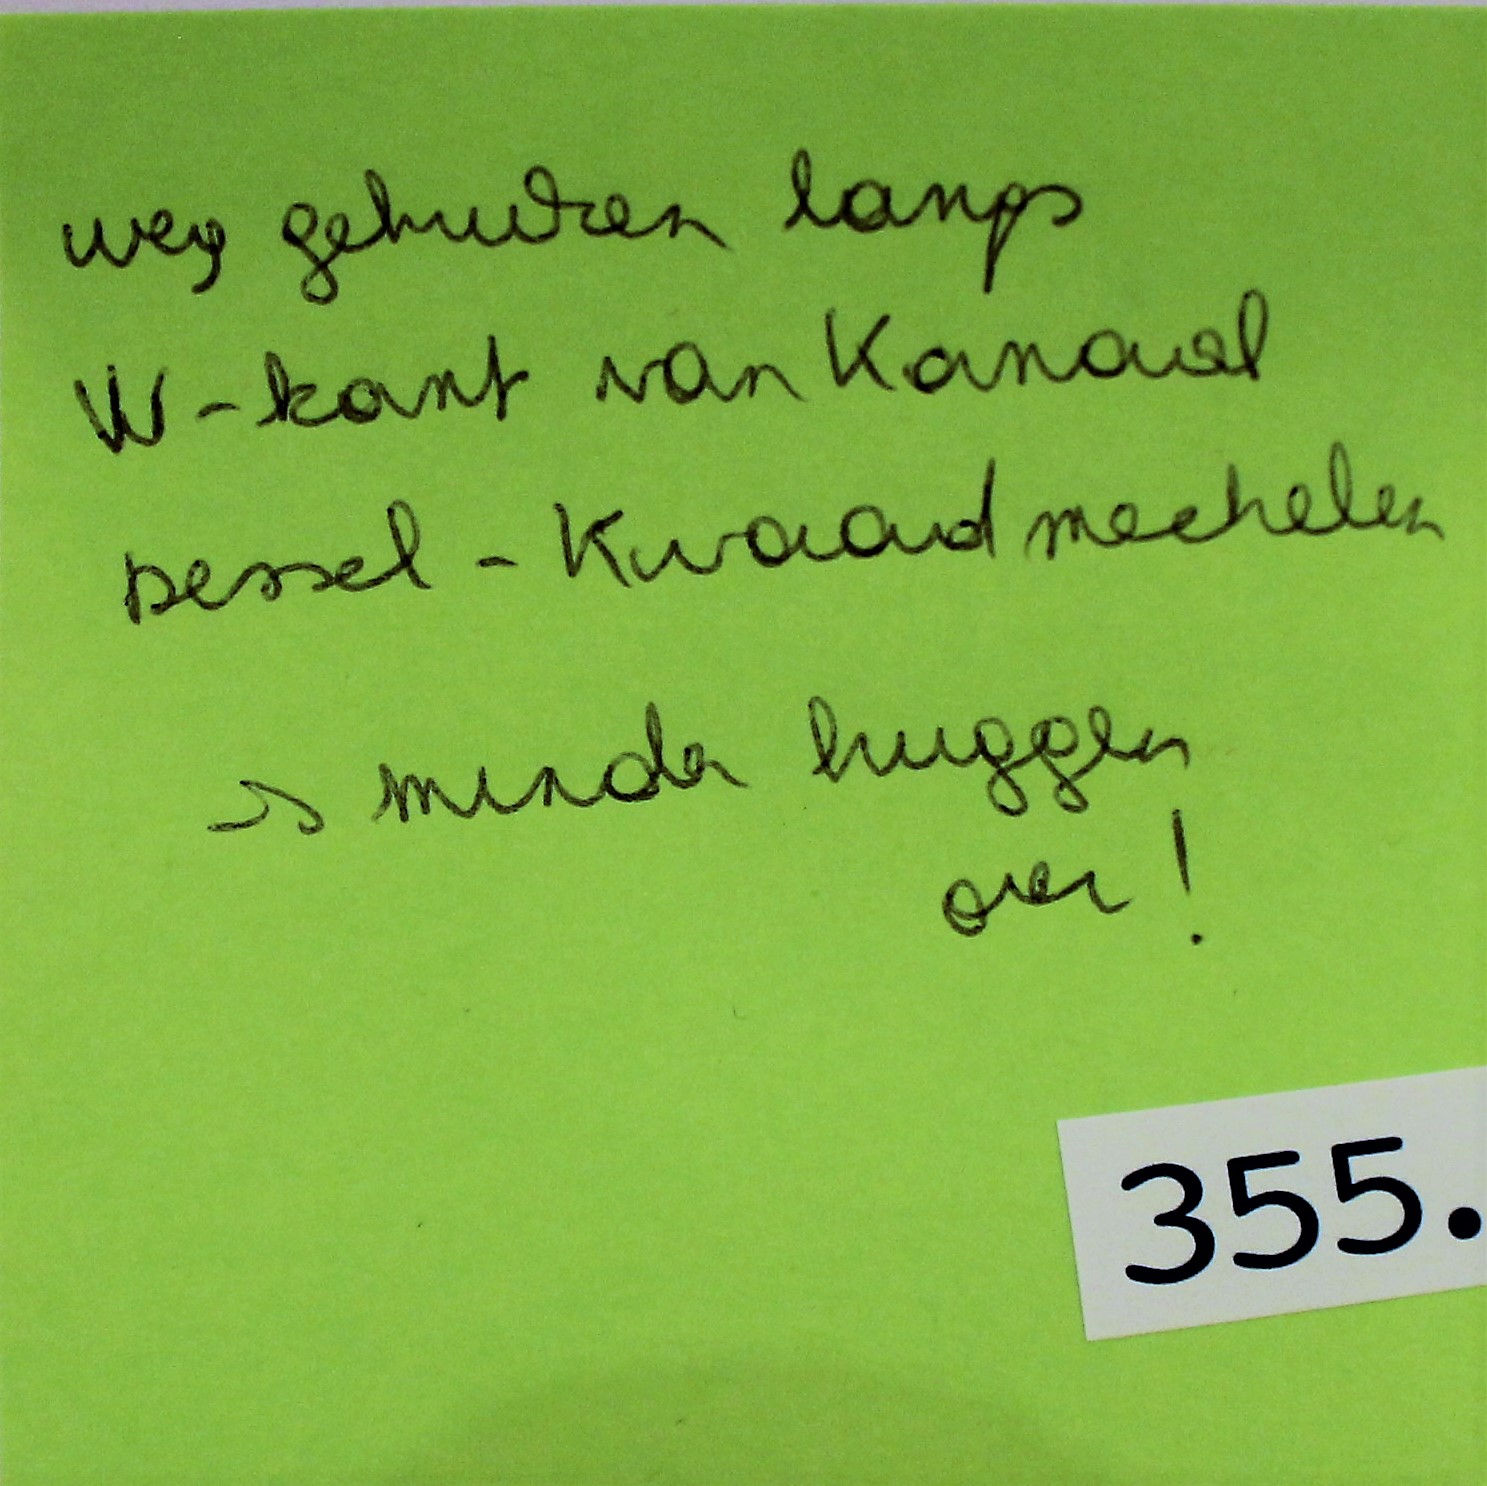 weg gebruiken langs
W-kant van Kanaal
Dessel - Kwaadmechelen
→ minder bruggen
over!
355.